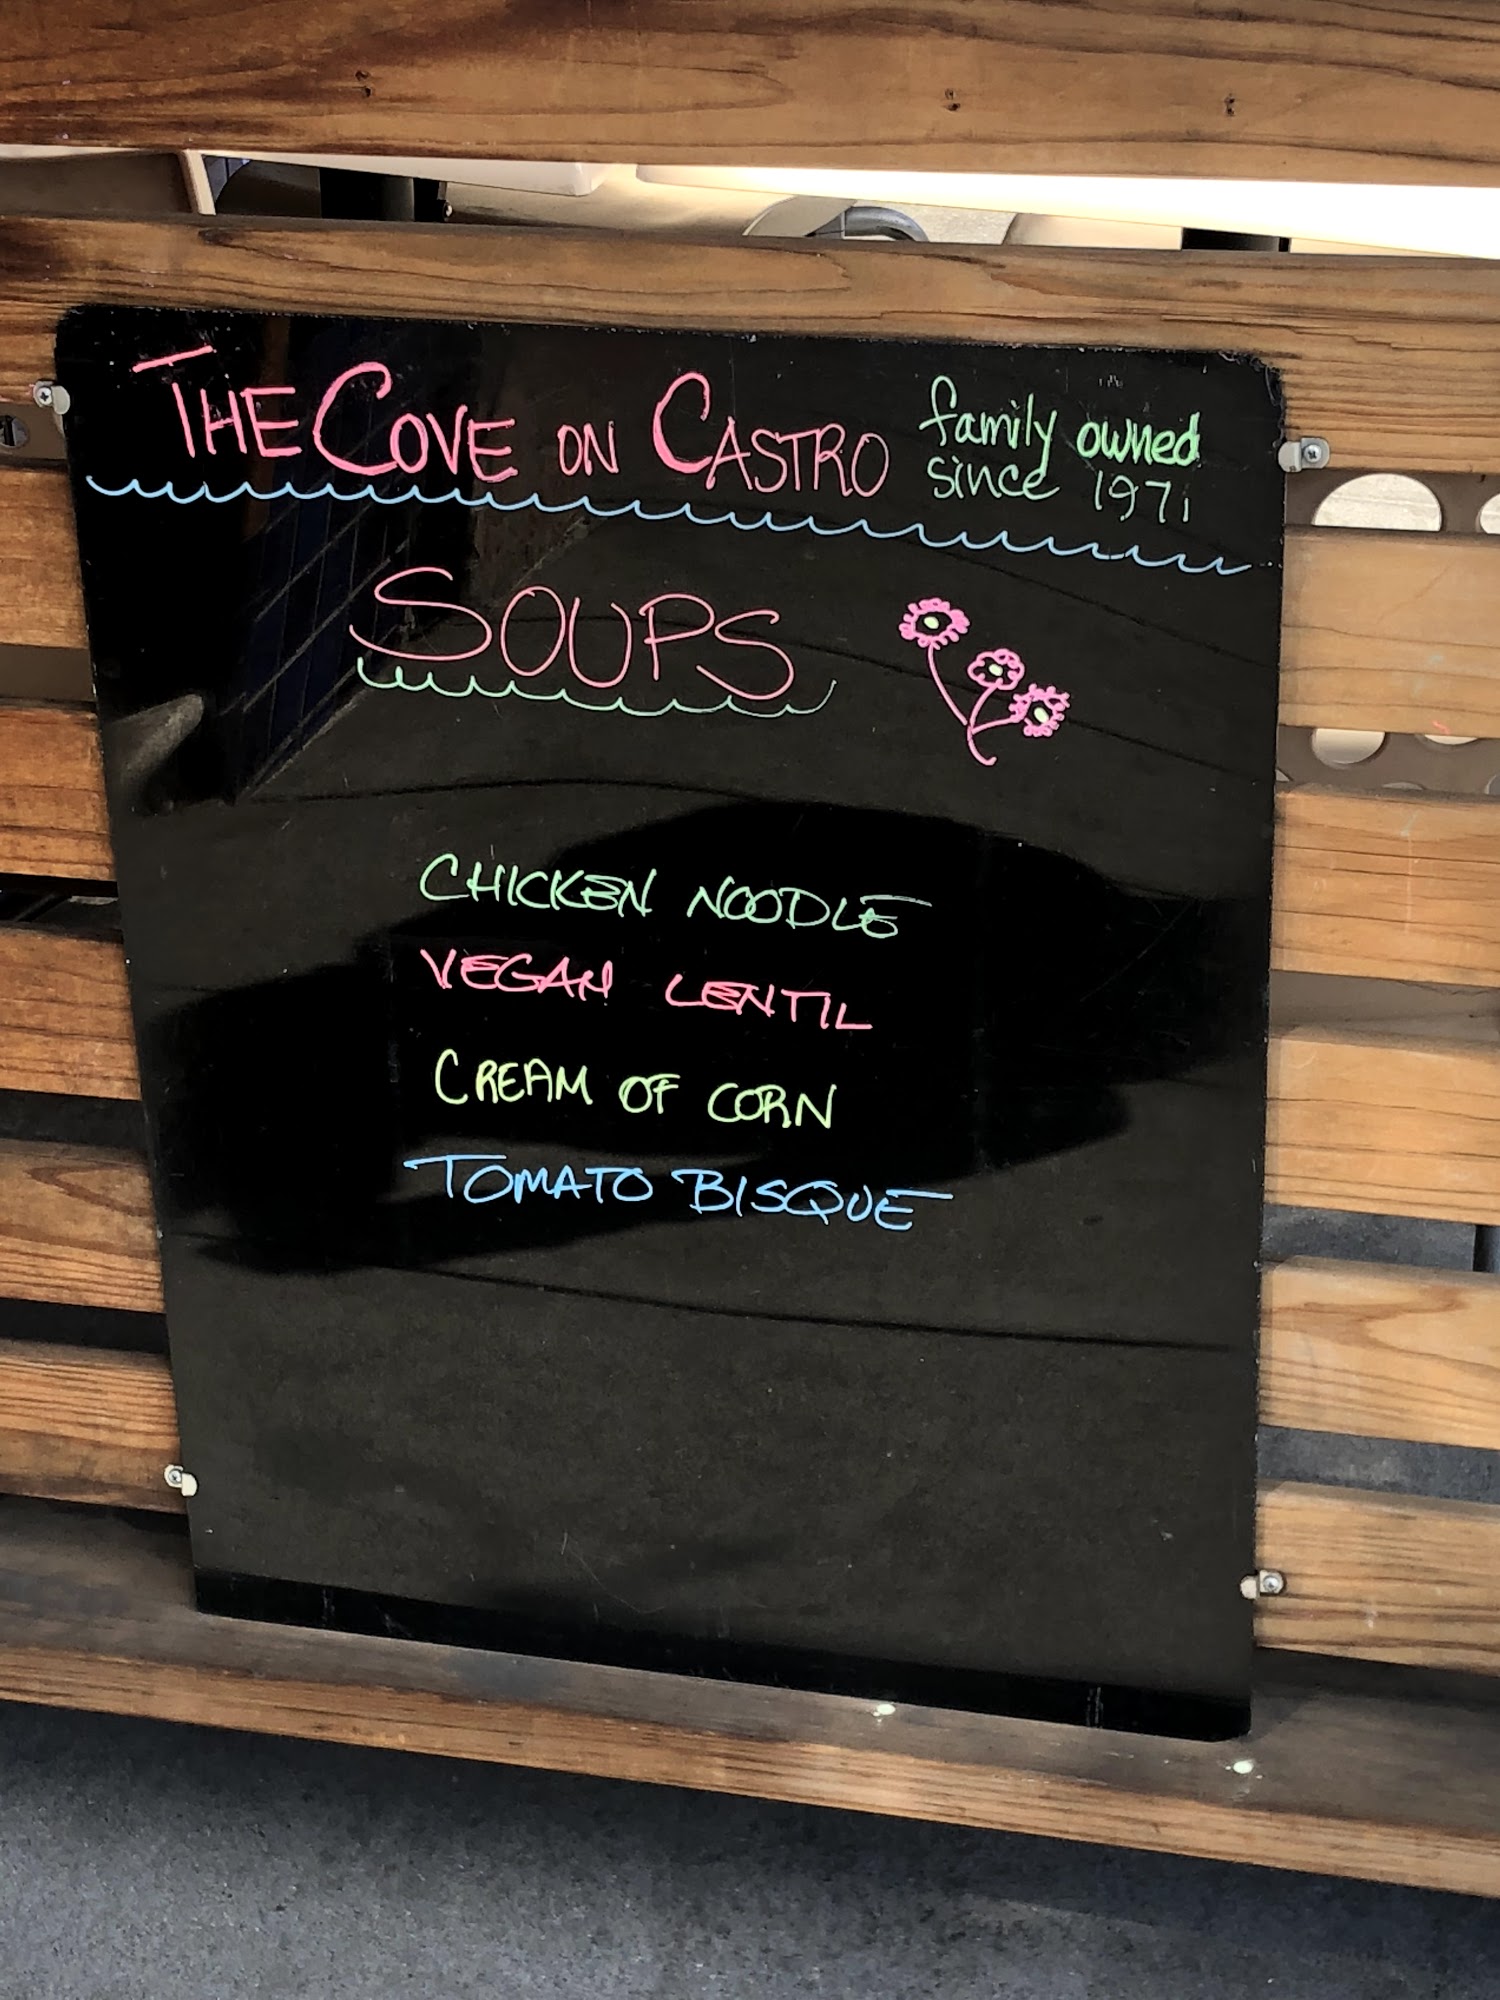 THE COVE ON CASTRO family owned
since 1971
SOUPS
CHICKEN NOODLE
VEGAN LENTIL
CREAM OF CORN
TOMATO BISQUE